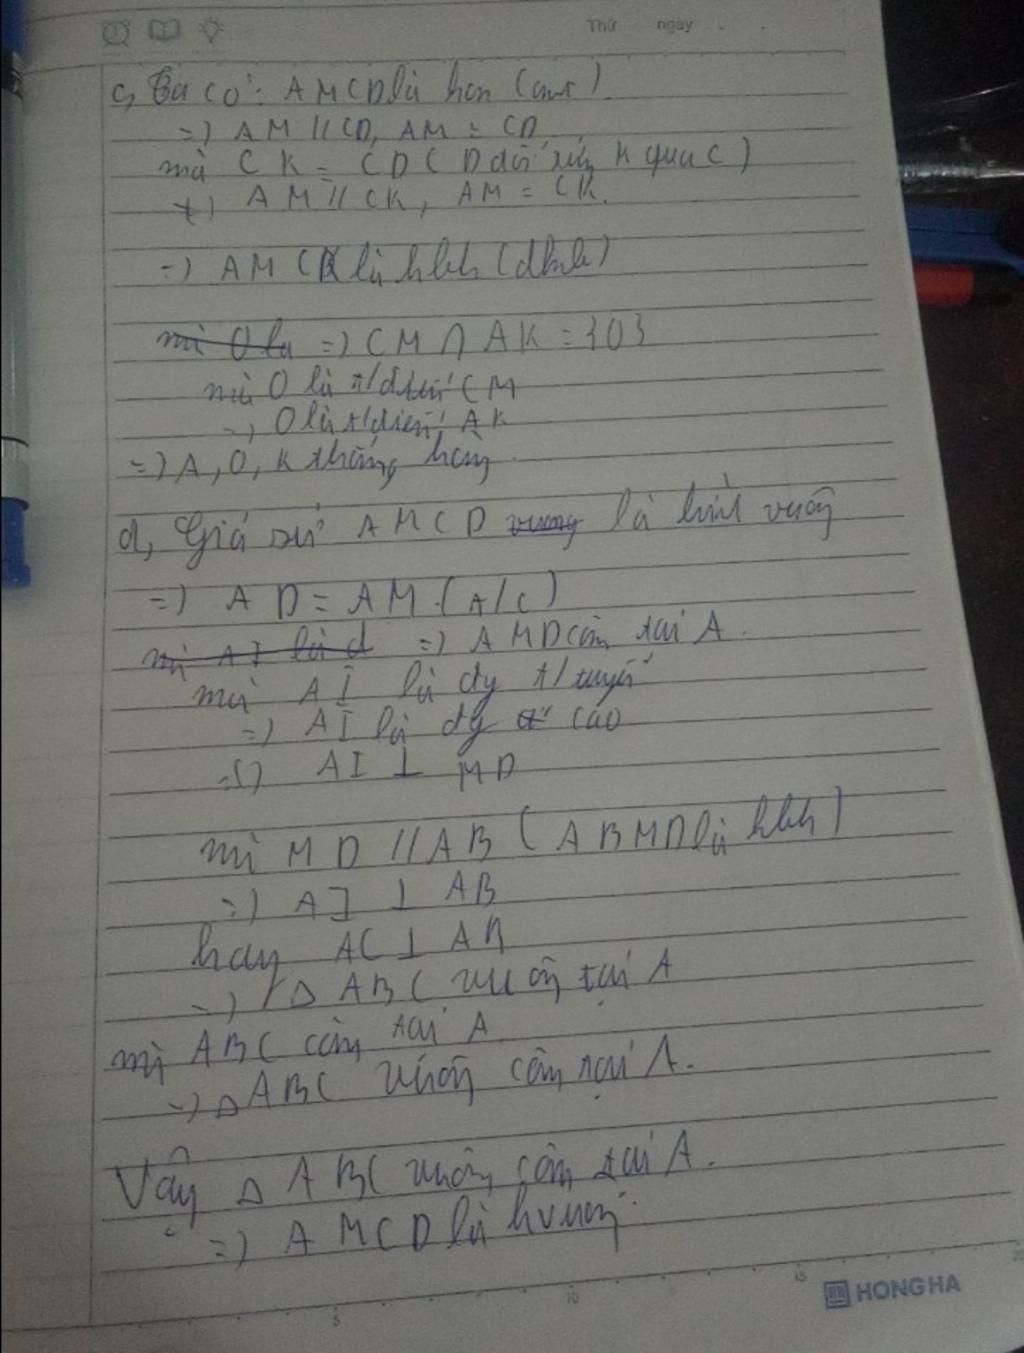 Thứ ngày
c, Ta có: AMCD là hcn (cmt)
=) AM // CD, AM = CD
mà CK = CD (D đối xứng K qua C)
=) AM // CK, AM = CK.
=) AMCK là hbh (dhnb)
mà O là =) CM ∩ AK = {O}
mà O là t/điểm CM
=) O là t/điểm AK
=) A, O, K thẳng hàng
d, Giả sử AMCD vuong là hình vuông
=) AD = AM (t/c)
mà AI là đ =) AMD cân tại A.
mà AI là đg t/tuyến
=) AI là đg cao
=) AI ⊥ MD
mà MD // AB (ABMD là hbh)
=) AI ⊥ AB
hay AC ⊥ AB
=) △ ABC vuông tại A
mà ABC cân tại A
=) △ ABC vuông cân tại A.
Vậy △ ABC vuông cân tại A.
=) AMCD là hvuong.
5 10 15 20
HONG HA